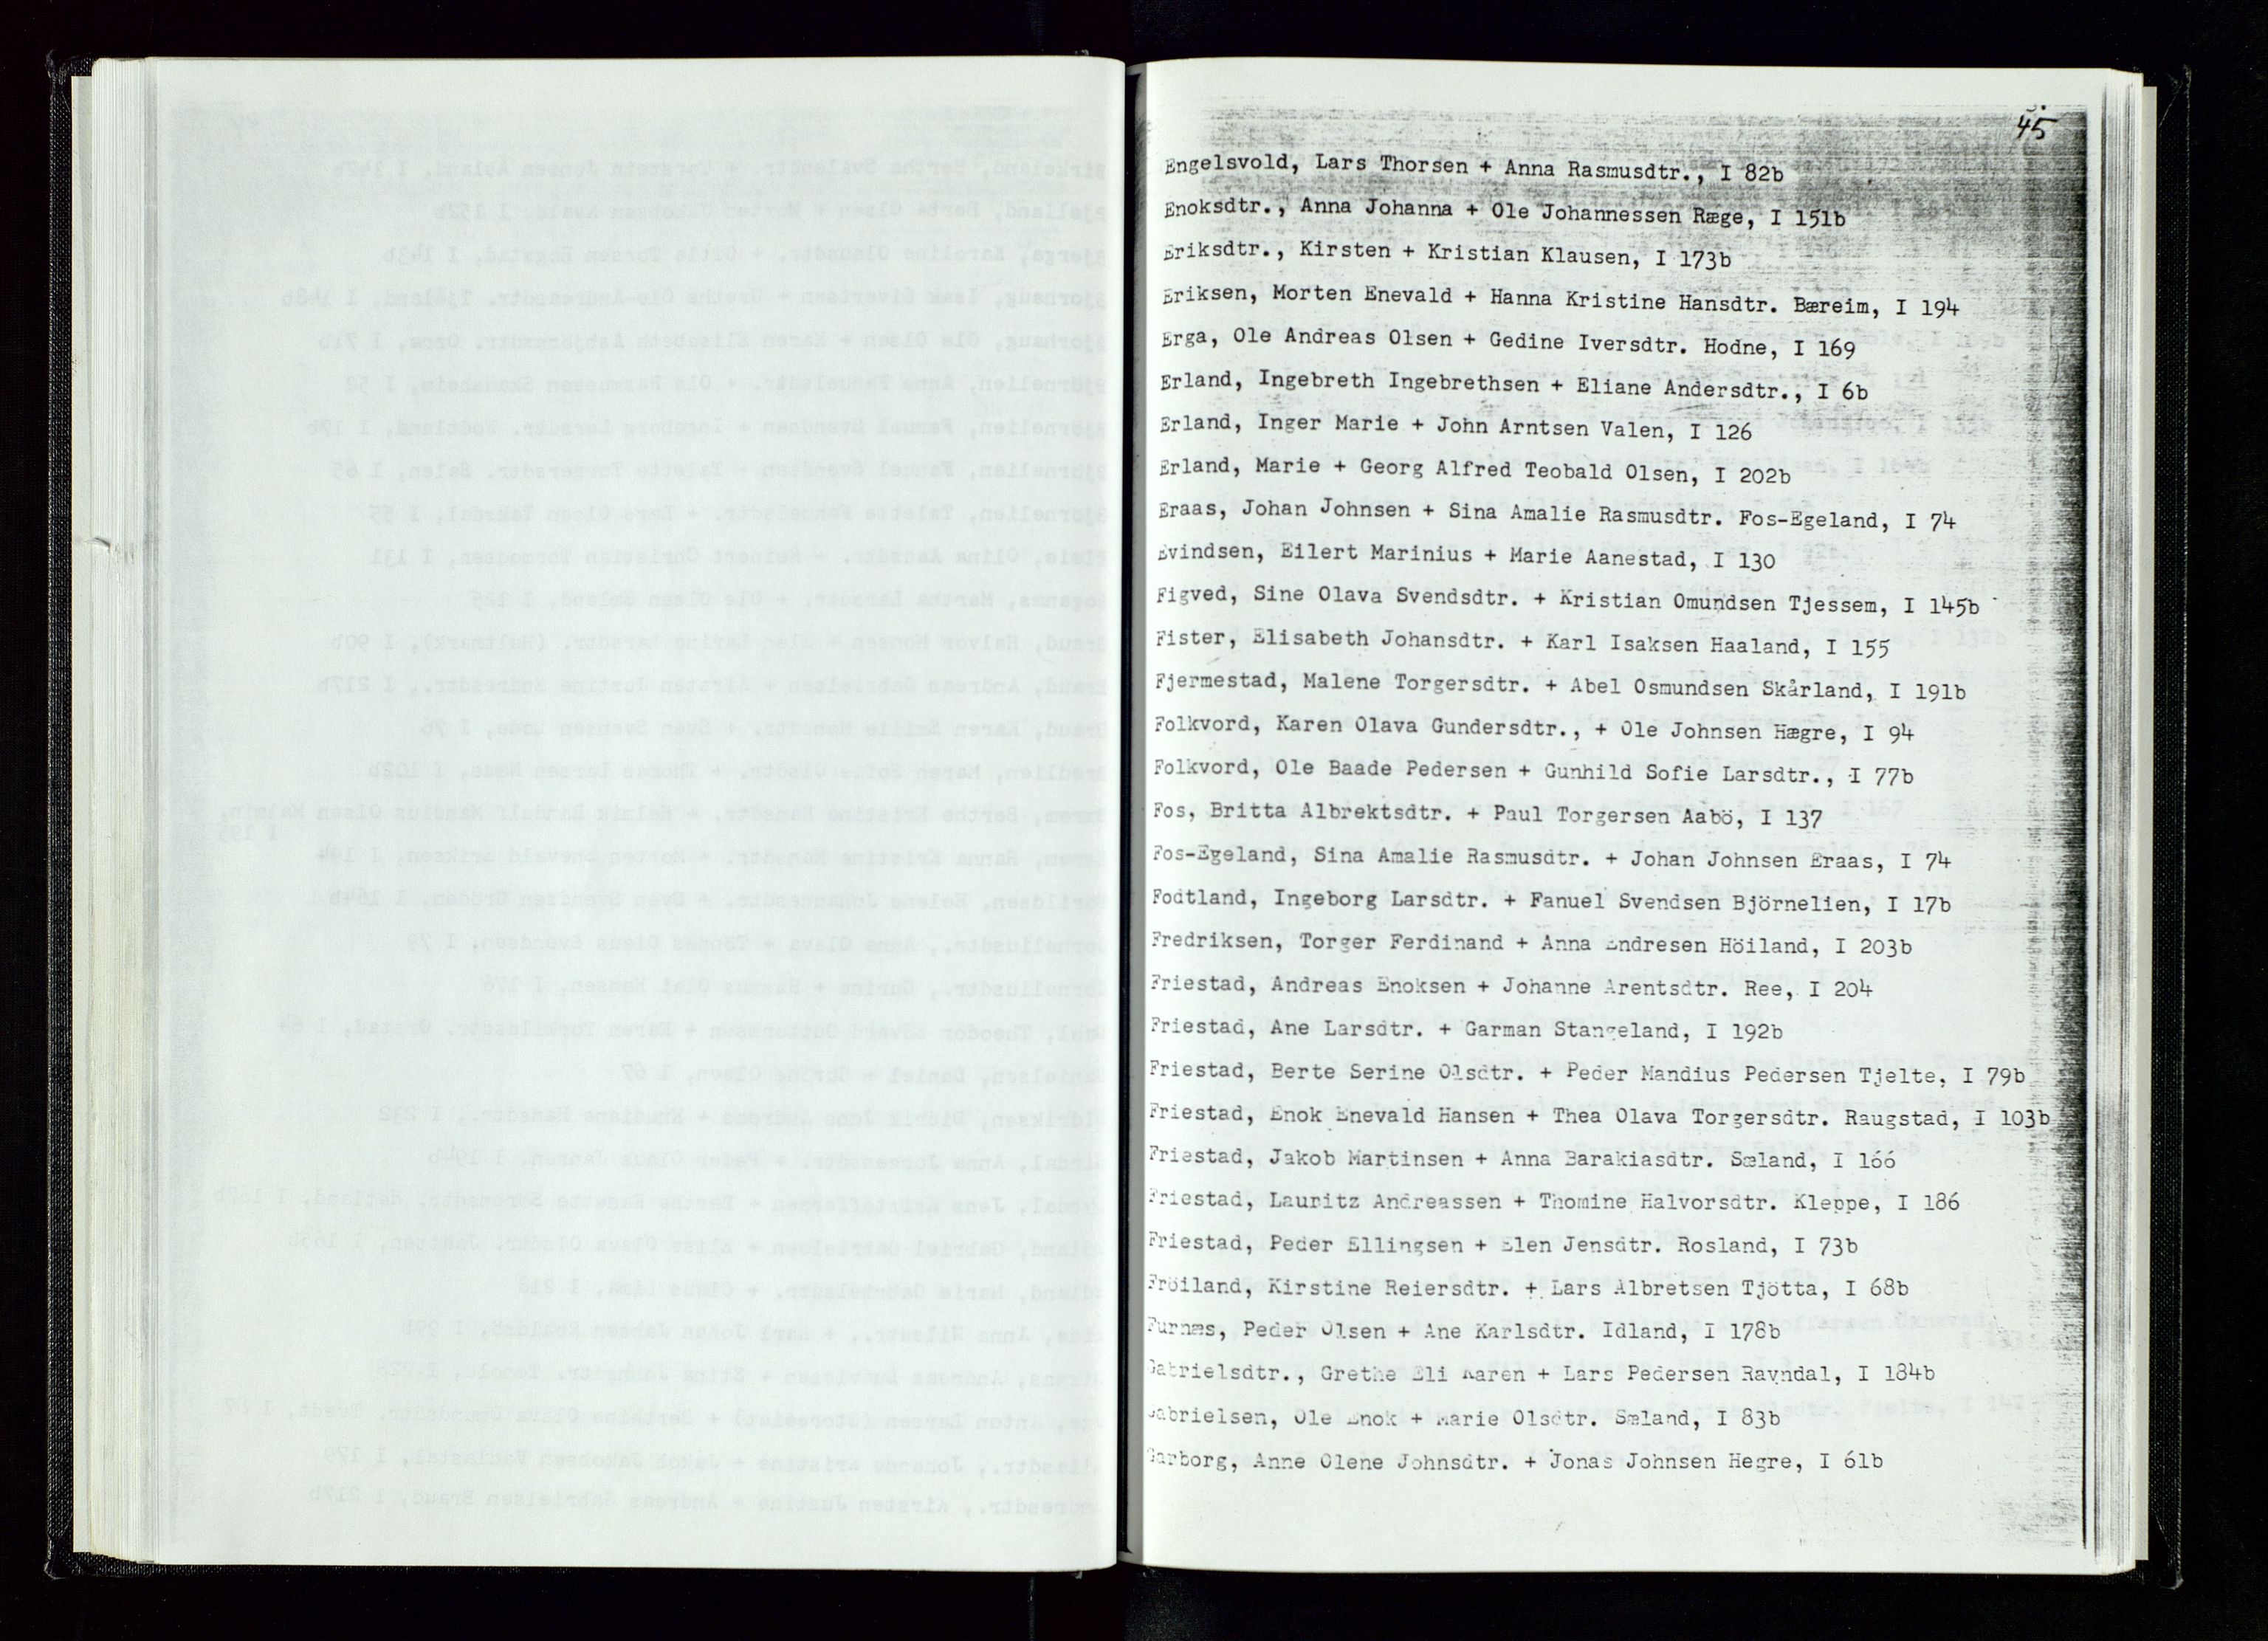 45
Engelsvold, Lars Thorsen + Anna Rasmusdtr., I 82b
Enoksdtr., Anna Johanna + Ole Johannessen Ræge, I 151b
Eriksdtr., Kirsten + Kristian Klausen, I 173b
Eriksen, Morten Enevald + Hanna Kristine Hansdtr. Bæreim, I 194
Erga, Ole Andreas Olsen + Gedine Iversdtr. Hodne, I 169
Erland, Ingebreth Ingebrethsen + Eliane Andersdtr., I 6b
Erland, Inger Marie + John Arntsen Valen, I 126
Erland, Marie + Georg Alfred Teobald Olsen, I 202b
Eraas, Johan Johnsen + Sina Amalie Rasmusdtr. Fos-Egeland, I 74
Evindsen, Eilert Marinius + Marie Aanestad, I 130
Figved, Sine Olava Svendsdtr. + Kristian Omundsen Tjessem, I 145b
Fister, Elisabeth Johansdtr. + Karl Isaksen Haaland, I 155
Fjermestad, Malene Torgersdtr. + Abel Osmundsen Skårland, I 191b
Folkvord, Karen Olava Gundersdtr., + Ole Johnsen Hægre, I 94
Folkvord, Ole Baade Pedersen + Gunhild Sofie Larsdtr., I 77b
Fos, Britta Albrektsdtr. + Paul Torgersen Aabö, I 137
Fos-Egeland, Sina Amalie Rasmusdtr. + Johan Johnsen Eraas, I 74
Fodtland, Ingeborg Larsdtr. + Fanuel Svendsen Björnelien, I 17b
Fredriksen, Torger Ferdinand + Anna Endresen Höiland, I 203b
Friestad, Andreas Enoksen + Johanne Arentsdtr. Ree, I 204
Friestad, Ane Larsdtr. + Garman Stangeland, I 192b
Friestad, Berte Serine Olsdtr. + Peder Mandius Pedersen Tjelte, I 79b
Friestad, Enok Enevald Hansen + Thea Olava Torgersdtr. Raugstad, I 103b
Friestad, Jakob Martinsen + Anna Barakiasdtr. Sæland, I 166
Friestad, Lauritz Andreassen + Thomine Halvorsdtr. Kleppe, I 186
Friestad, Peder Ellingsen + Elen Jensdtr. Rosland, I 73b
Fröiland, Kirstine Reiersdtr. + Lars Albretsen Tjötta, I 68b
Furnæs, Peder Olsen + Ane Karlsdtr. Idland, I 178b
Gabrielsdtr., Grethe Eli Karen + Lars Pedersen Ravndal, I 184b
Gabrielsen, Ole Enok + Marie Olsdtr. Sæland, I 83b
Garborg, Anne Olene Johnsdtr. + Jonas Johnsen Hegre, I 61b